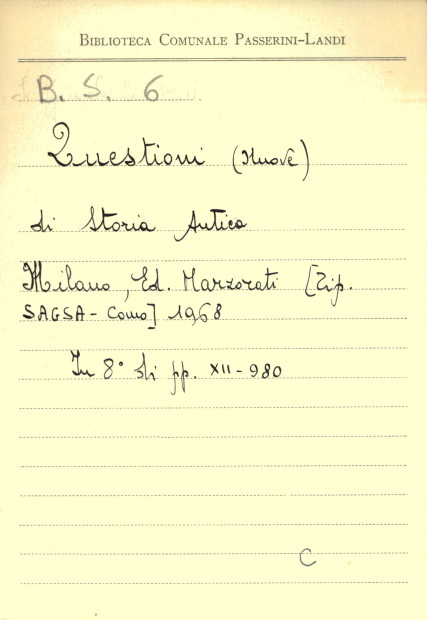 BIBLIOTECA COMUNALE PASSERINI-LANDI
B. S. 6
Questioni (Nuove)
di Storia Antica
Milano, Ed. Marzorati [Tip.
SAGSA - Como] 1968
In 8° di pp. XII - 980
C